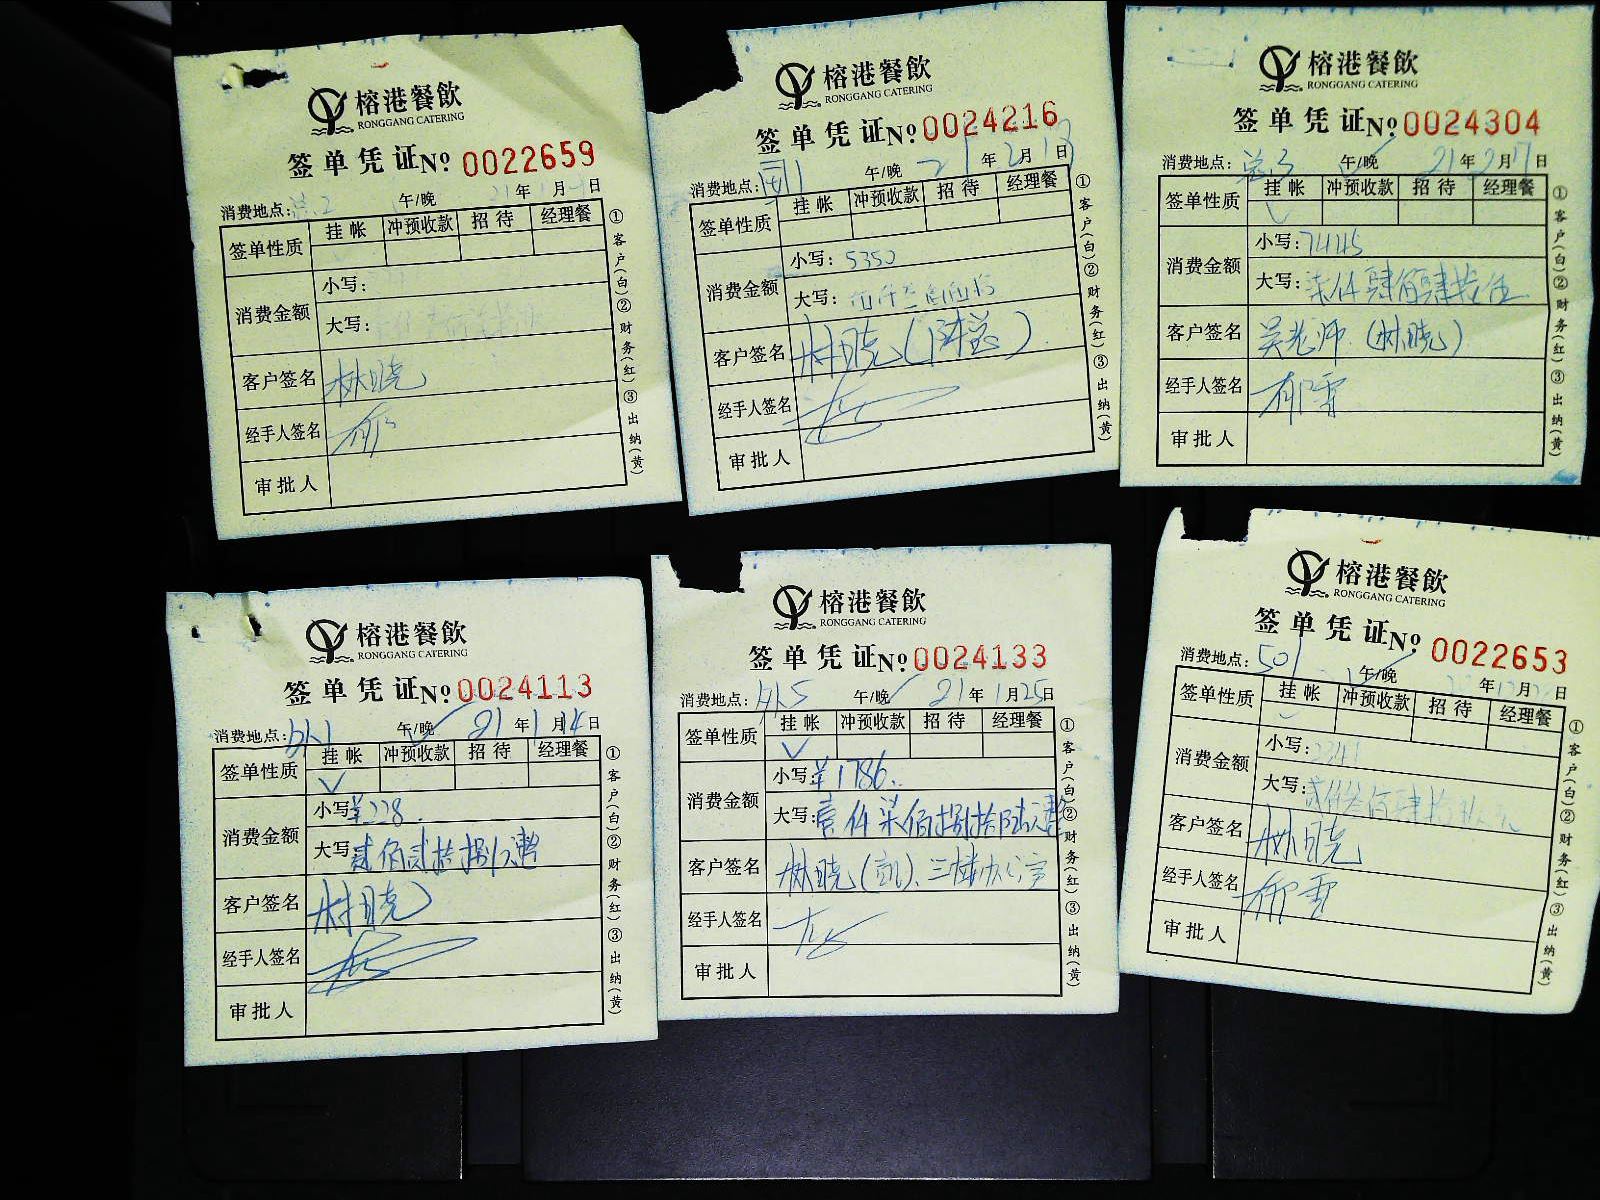 榕港餐飲
RONGGANG CATERING
签单凭证 No 0022659
消费地点: 午/晚 21年 月 日
签单性质 挂帐 冲预收款 招待 经理餐
消费金额 小写:
大写:
客户签名 林晓
经手人签名
审批人
①客户(白)②财务(红)③出纳(黄)
榕港餐飲
RONGGANG CATERING
签单凭证 No 0024216
消费地点: 午/晚 21年2月13日
签单性质 挂帐 冲预收款 招待 经理餐
消费金额 小写: 5350
大写: 伍仟叁佰伍拾
客户签名 林晓(陈总)
经手人签名
审批人
①客户(白)②财务(红)③出纳(黄)
榕港餐飲
RONGGANG CATERING
签单凭证 No 0024304
消费地点: 总3 午/晚 21年2月17日
签单性质 挂帐 ✓ 冲预收款 招待 经理餐
消费金额 小写: 7445
大写: 柒仟肆佰肆拾伍
客户签名 吴老师(林晓)
经手人签名 郁雪
审批人
①客户(白)②财务(红)③出纳(黄)
榕港餐飲
RONGGANG CATERING
签单凭证 No 0024113
消费地点: 午/晚 21年1月14日
签单性质 挂帐 ✓ 冲预收款 招待 经理餐
消费金额 小写: ¥228.
大写: 贰佰贰拾捌元整
客户签名 林晓
经手人签名
审批人
①客户(白)②财务(红)③出纳(黄)
榕港餐飲
RONGGANG CATERING
签单凭证 No 0024133
消费地点: 午/晚 21年1月25日
签单性质 挂帐 ✓ 冲预收款 招待 经理餐
消费金额 小写: ¥1786.
大写: 壹仟柒佰捌拾陆元整
客户签名 林晓(凯)、三楼办公室
经手人签名
审批人
①客户(白)②财务(红)③出纳(黄)
榕港餐飲
RONGGANG CATERING
签单凭证 No 0022653
消费地点: 501 午/晚 年 月 日
签单性质 挂帐 冲预收款 招待 经理餐
消费金额 小写: 2341
大写: 贰仟叁佰肆拾
客户签名 林晓
经手人签名 郁雪
审批人
①客户(白)②财务(红)③出纳(黄)